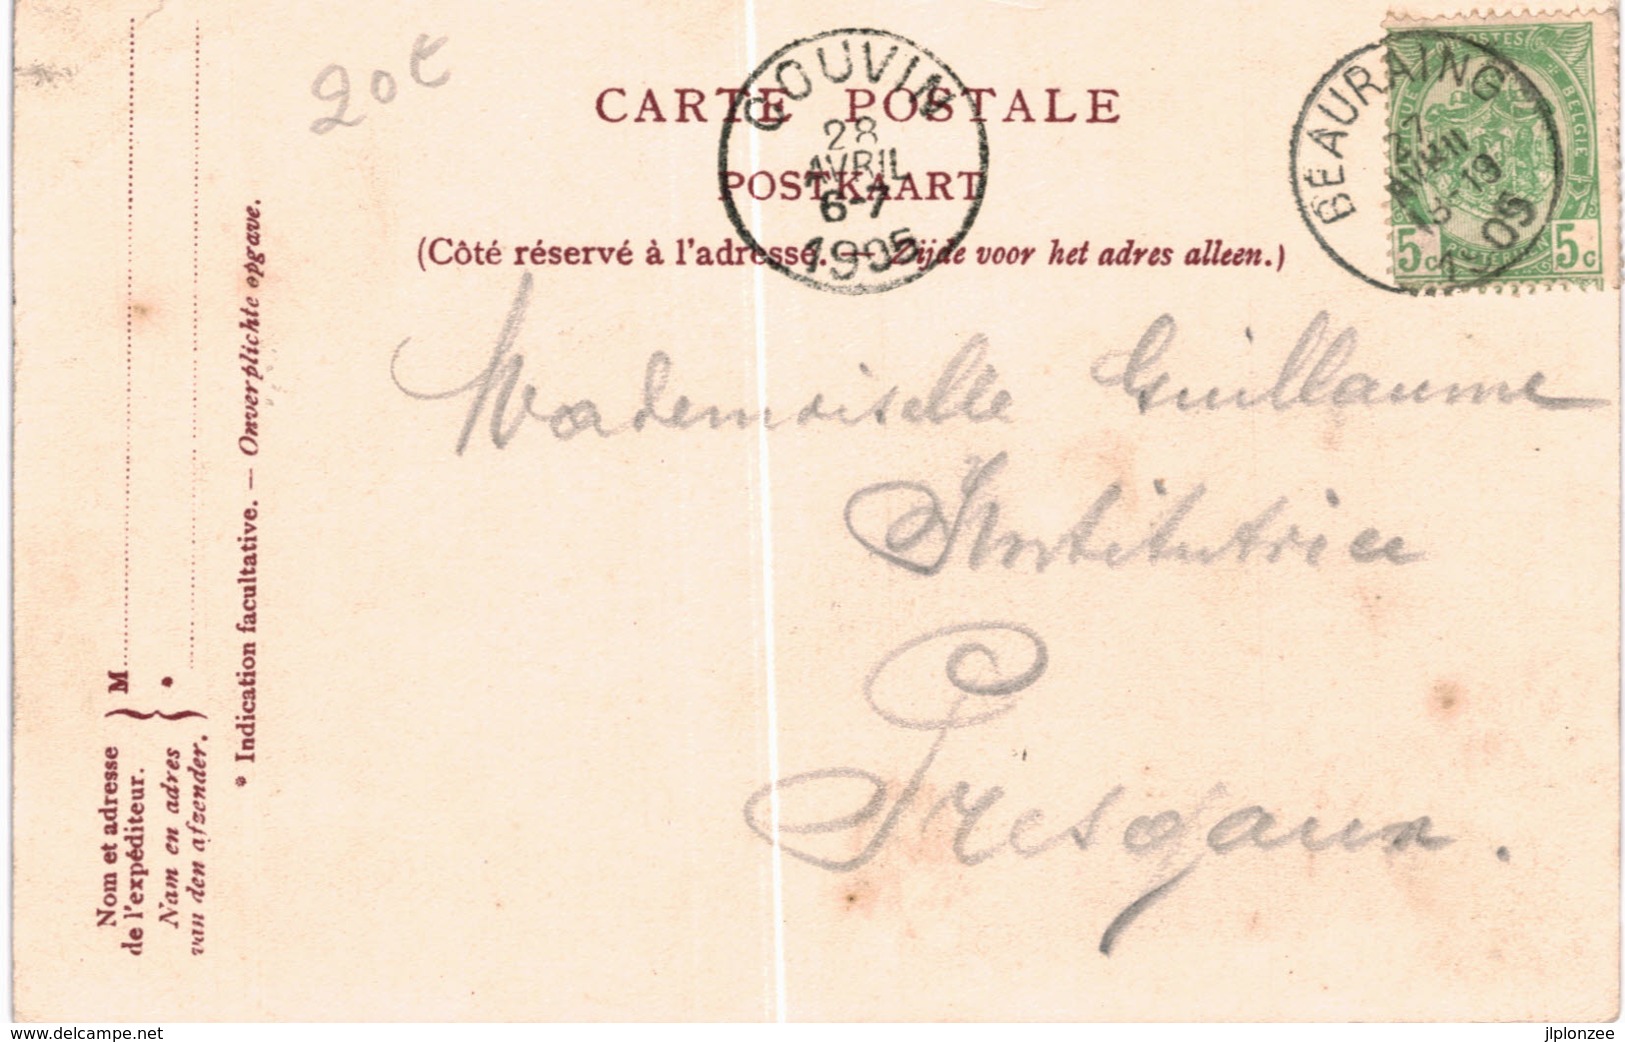 20c
CARTE POSTALE
POSTKAART
(Côté réservé à l'adresse. — Zijde voor het adres alleen.)
COUVIN
28
AVRIL
6-7
1905
BEAURAING
27
AVRIL
1905
POSTES
BELGIE
5c 5c
Mademoiselle Guillaume
Institutrice
Presgaux.
Nom et adresse
de l'expéditeur.
Nam en adres
van den afzender.
M
*
* Indication facultative. — Onverplichte opgave.
www.delcampe.net
jlplonzee